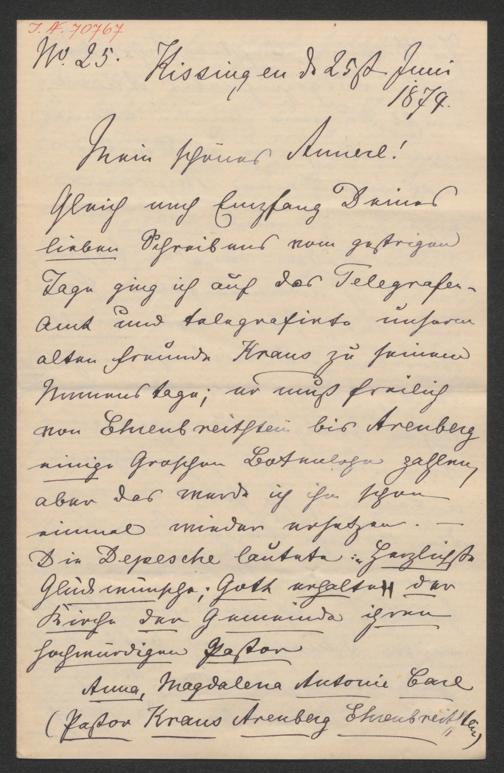 I. N. 70767
No. 25.
Kissingen d 25st Juni
1879.
Mein schönes Annerl!
Gleich nach Empfang Deines
lieben Schreibens vom gestrigen
Tage ging ich auf das Telegrafen-
amt und telegrafirte unserm
alten Freunde Kraus zu seinem
Namenstage; er muß freilich
von Ehrenbreitstein bis Arenberg
einige Groschen Botenlohn zahlen,
aber das werde ich ihm schon
einmal wieder ersetzen. —
Die Depesche lautete: Herzlichste
Glückwünsche; Gott erhalte der
Kirche der Gemeinde ihren
hochwürdigen Pastor
Anna, Magdalena Antonie Carl
(Pastor Kraus Arenberg Ehrenbreitstein)